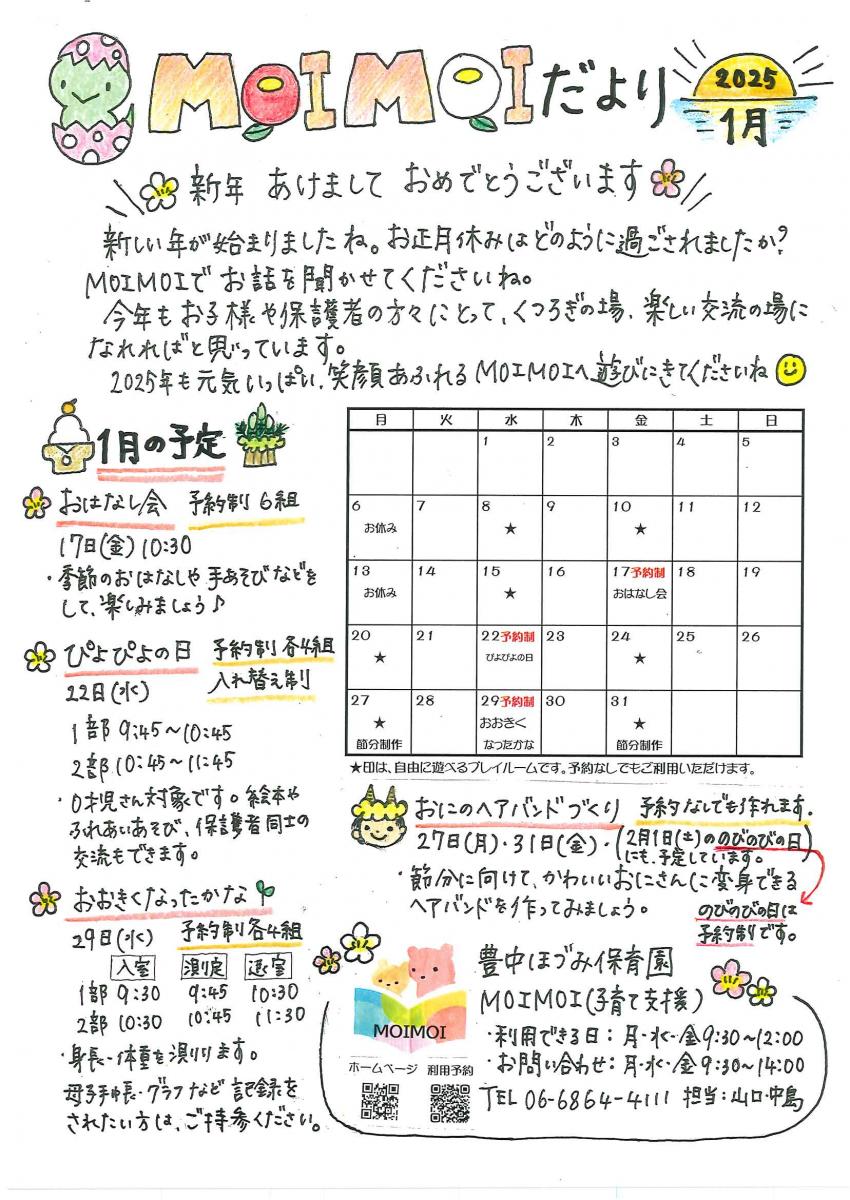 MOIMOIだより
2025
1月
新年 あけまして おめでとうございます
新しい年が始まりましたね。お正月休みはどのように過ごされましたか?
MOIMOIでお話を聞かせてくださいね。
今年もお子様や保護者の方々にとって、くつろぎの場、楽しい交流の場に
なれればと思っています。
2025年も元気いっぱい、笑顔あふれるMOIMOIへ遊びにきてくださいね
1月の予定
おはなし会 予約制 6組
17日(金)10:30
・季節のおはなしや手あそびなどを
して、楽しみましょう♪
ぴよぴよの日 予約制 各4組
入れ替え制
22日(水)
1部 9:45～10:45
2部 10:45～11:45
・0才児さん対象です。絵本や
ふれあいあそび、保護者同士の
交流もできます。
おおきくなったかな
29日(水) 予約制 各4組
入室 測定 退室
1部 9:30 9:45 10:30
2部 10:30 10:45 11:30
・身長・体重を測ります。
母子手帳・グラフなど記録を
されたい方は、ご持参ください。
月 火 水 木 金 土 日
1 2 3 4 5
6 7 8 9 10 11 12
お休み ★ ★
13 14 15 16 17予約制 18 19
お休み ★ おはなし会
20 21 22予約制 23 24 25 26
★ ぴよぴよの日 ★
27 28 29予約制 30 31
★ おおきく ★
節分制作 なったかな 節分制作
★印は、自由に遊べるプレイルームです。予約なしでもご利用いただけます。
おにのヘアバンドづくり 予約なしでも作れます。
27日(月)・31日(金)・(2月1日(土)ののびのびの日
にも、予定しています。)
・節分に向けて、かわいいおにさんに変身できる
ヘアバンドを作ってみましょう。
のびのびの日は
予約制です。
MOIMOI
ホームページ 利用予約
豊中ほづみ保育園
MOIMOI(子育て支援)
・利用できる日：月・水・金 9:30～12:00
・お問い合わせ：月・水・金 9:30～14:00
TEL 06-6864-4111 担当：山口・中島